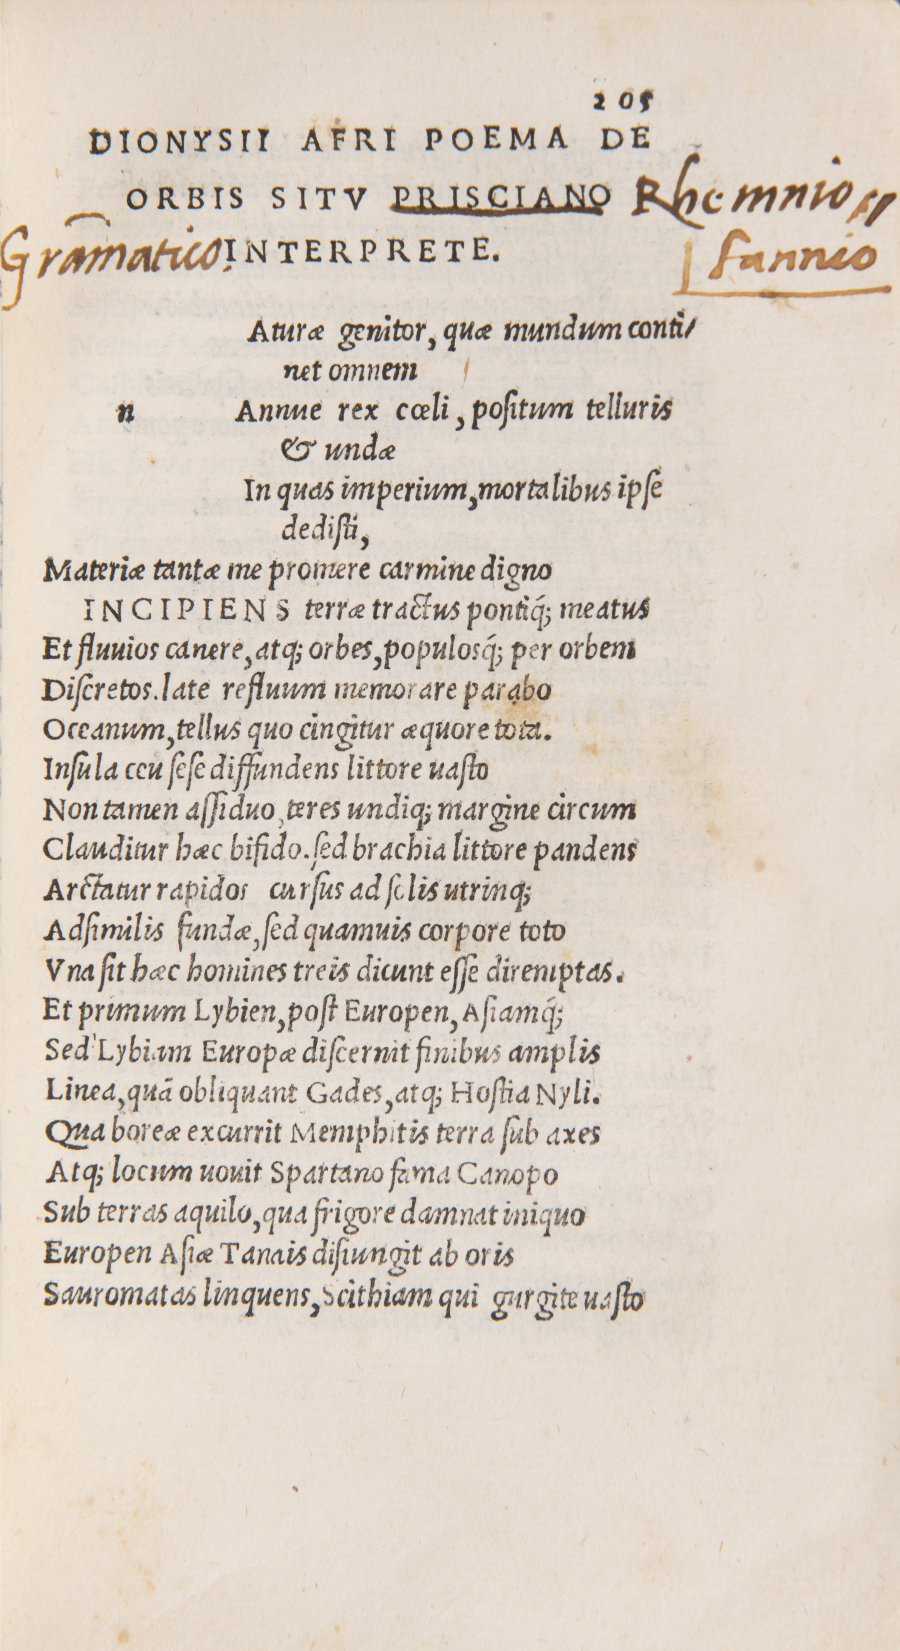 205
DIONYSII AFRI POEMA DE
ORBIS SITV PRISCIANO Rhemnio
Gramatico. INTERPRETE. fannio
Aturæ genitor, quæ mundum conti/
net omnem
n Annue rex cœli, poſitum telluris
& undæ
In quas imperium, mortalibus ipſe
dediſti,
Materiæ tantæ me promere carmine digno
INCIPIENS terræ tractus pontiq́; meatus
Et fluuios canere, atq; orbes, populosq́; per orbem
Diſcretos. late refluum memorare parabo
Oceanum, tellus quo cingitur æquore tota.
Inſula ceu ſeſe diffundens littore uaſto
Non tamen aſſiduo, teres undiq; margine circum
Clauditur hæc bifido. ſed brachia littore pandens
Arctatur rapidos curſus ad ſolis utrinq;
Adſimilis fundæ, ſed quamuis corpore toto
Vna ſit hæc homines treis dicunt eſſe diremptas.
Et primum Lybien, poſt Europen, Aſiamq́;
Sed Lybiam Europæ diſcernit finibus amplis
Linea, quā obliquant Gades, atq; Hoſtia Nyli.
Qua boreæ excurrit Memphitis terra ſub axes
Atq; locum uouit Spartano fama Canopo
Sub terras aquilo, qua frigore damnat iniquo
Europen Aſiæ Tanais diſiungit ab oris
Sauromatas linquens, Scithiam qui gurgite uaſto